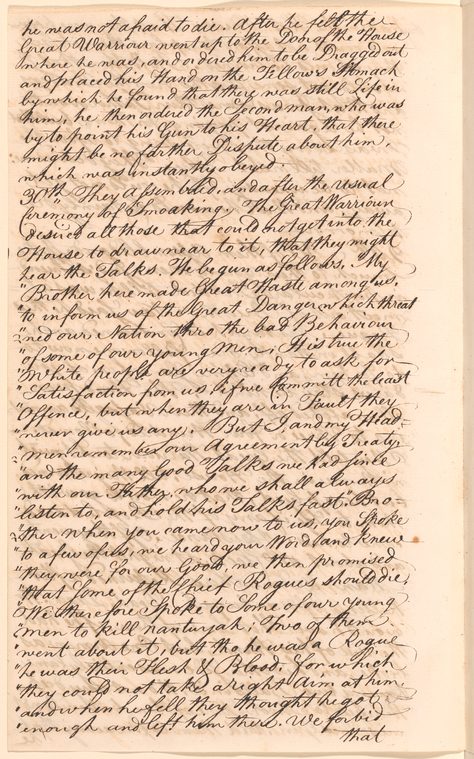 he was not afraid to die. After he fell the
Great Warriour went up to the Door of the House
where he was, and ordered him to be Dragged out
and placed his Hand on the Fellows Stomach
by which he found that there was still Life in
him, he then ordered the Second man, who was
by to point his Gun to his Heart, that there
might be no farther Dispute about him,
which was instantly obeyed.
30th They assembled, and after the usual
Ceremony of Smoaking, The Great Warriour
desired all those that could not get into the
House to draw near to it, that they might
hear the Talks. He begun as follows. "My
"Brother here made Great Haste among us,
"to inform us of the Great Danger which threat
"ned our Nation thro the bad Behaviour
"of some of our young Men, It is true the
"White people are very ready to ask for
"Satisfaction from us if we Committ the least
"Offence, but when they are in Fault they
"never give us any. But I and my Head=
"men remember our Agreement by Treaty,
"and the many Good Talkes we had since
"with our Father, who we shall always
"listen to, and hold his Talks fast. Bro=
"ther when you came now to us, you Spoke
"to a few of us, we heard your Word and knew
"they were for our Good, we then promised
"that Some of the Chief Rogues should die,
"We therefore Spoke to Some of our young
"men to kill Nantuyah; Two of them
"went about it, but tho he was a Rogue
"he was their Flesh & Blood, for which
"they could not take a right Aim at him,
"and when he fell they thought he got
"enough and left him there. We forbid
that